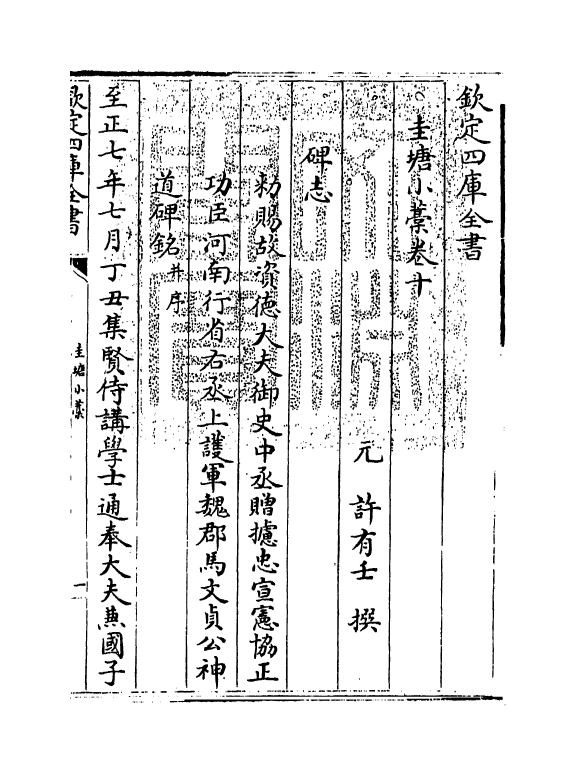 欽定四庫全書
圭塘小藁卷十
元 許有壬 撰
碑志
勅賜故資德大夫御史中丞贈攄忠宣憲協正
功臣河南行省右丞上護軍魏郡馬文貞公神
道碑銘并序
至正七年七月丁丑集賢侍講學士通奉大夫兼國子
欽定四庫全書
圭塘小藁
一